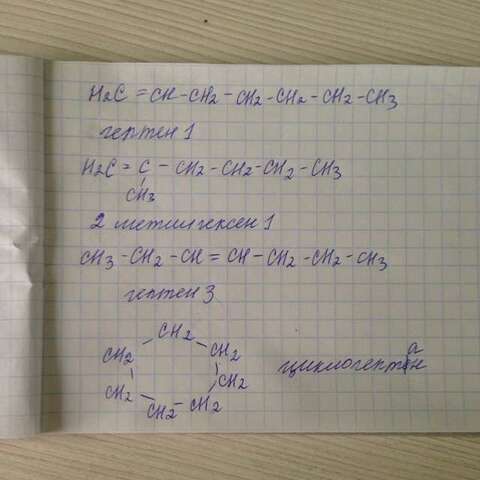 H2C = CH - CH2 - CH2 - CH2 - CH2 - CH3
гептен 1
H2C = C - CH2 - CH2 - CH2 - CH3
CH3
2 метилгексен 1
CH3 - CH2 - CH = CH - CH2 - CH2 - CH3
гептен 3
CH2
CH2 CH2
CH2 CH2
CH2 CH2
циклогептан